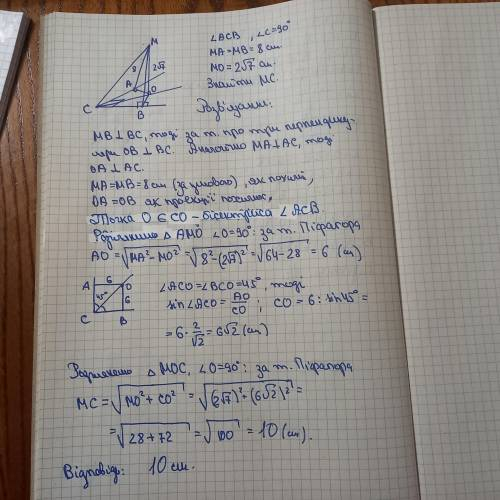 M
8
2√7
A
O
C
B
∠ACB, ∠C=90°
MA=MB=8 см.
MO=2√7 см.
Знайти MC.
Розв'язання:
MB⊥BC, тоді за т. про три перпендику-
ляри OB⊥BC. Аналогічно MA⊥AC, тоді
OA⊥AC.
MA=MB=8см (за умовою), як похилі,
OA=OB як проекції похилих,
Точка O∈CO – бісектриса ∠ACB.
Розглянемо △AMO ∠O=90°: за т. Піфагора
AO=√MA²-MO²=√8²-(2√7)²=√64-28=6 (см)
A 6 O
45° 6
C B
∠ACO=∠BCO=45°, тоді
sin∠ACO=AO/CO; CO=6:sin45°=
=6·2/√2=6√2(см)
Розглянемо △MOC, ∠O=90°: за т. Піфагора
MC=√MO²+CO²=√(2√7)²+(6√2)²=
=√28+72=√100=10(см).
Відповідь: 10см.